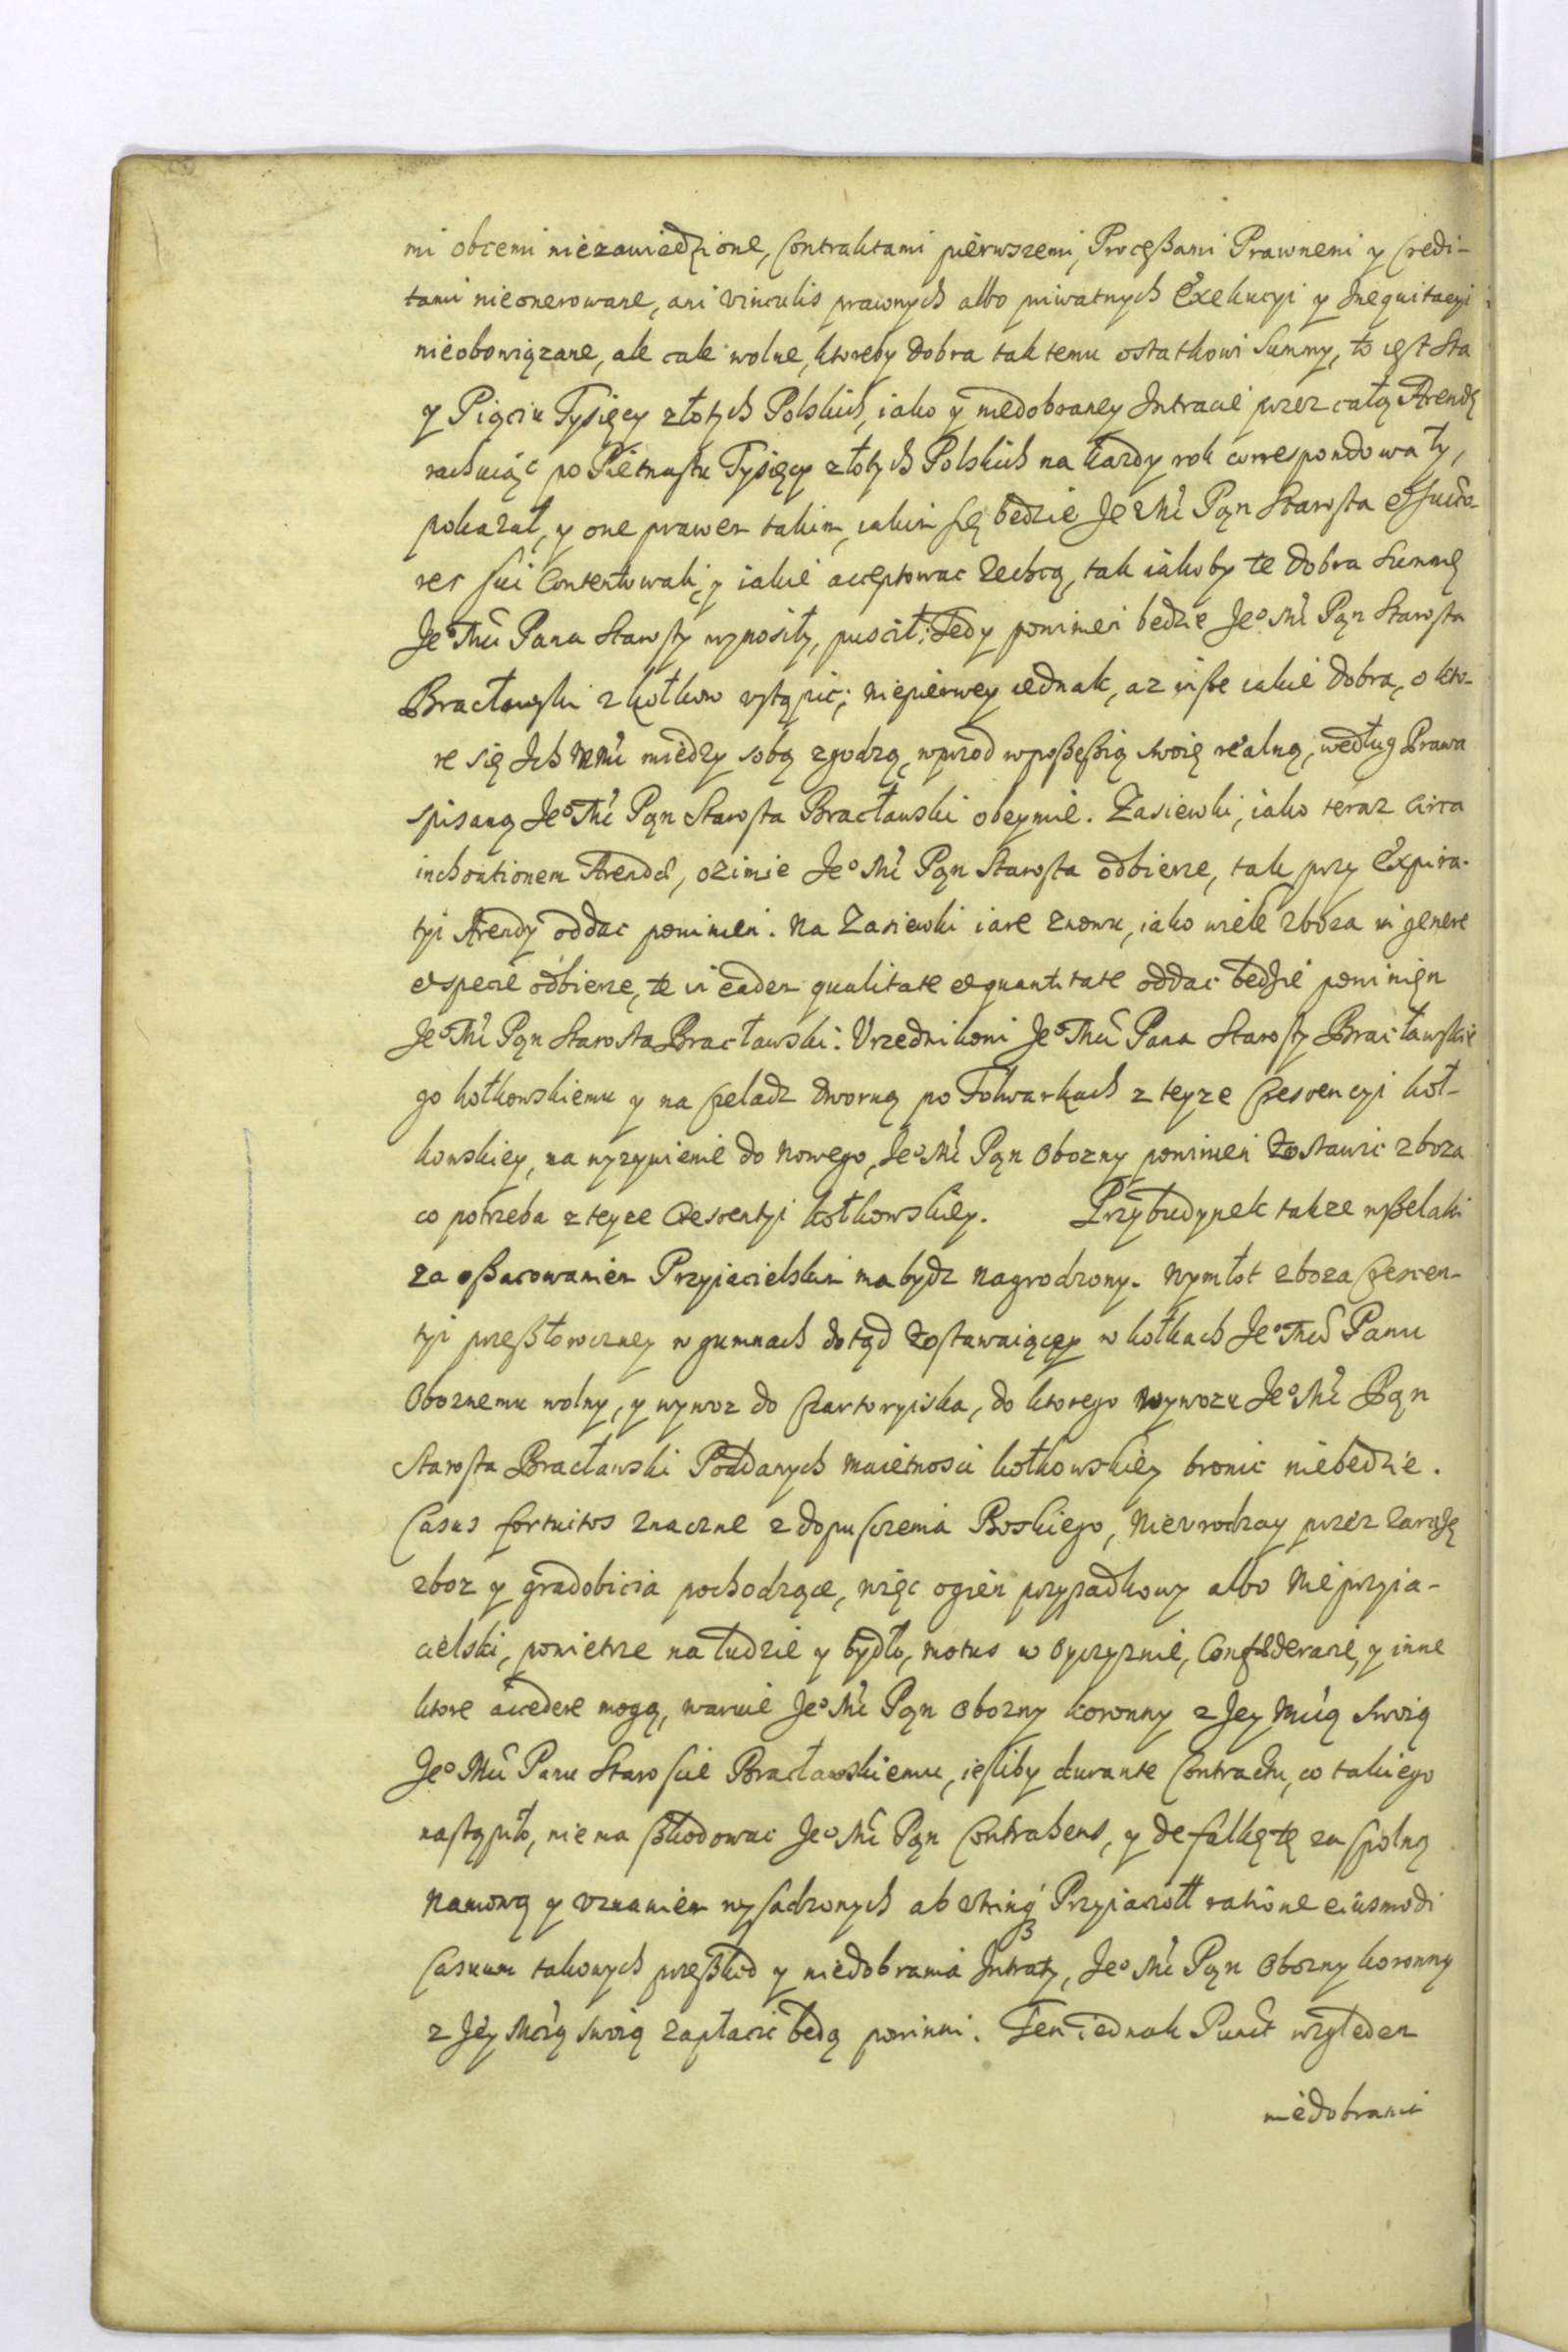 mi obcemi niezawiedzione, Contraktami pierwszemi, Processami Prawnemi y Credi-
tami nieonerowane, ani vinculis prawnych albo priwatnych Exekucyi y Inequitacyi
nieobowiązane, ale cale wolne, ktoreby dobra tak temu ostatkowi Summy, to iest Sta
y Pięciu Tysięcy złotych Polskich, iako y niedobraney Intracie przez całą Arendę
rachuiąc po Piętnastu Tysięcy złotych Polskich na kazdy rok correspondowały,
pokazał, y one prawem takim, iakim się będzie Jeo Mć Pąn Starosta et Succo-
res sui Contentowali, y iakie acceptowac zechcą, tak iakoby te dobra Summę
Jeo Mći Pana Starosty wynosiły, puscił; Tedy powinien bedzie Jeo Mć Pąn Starosta
Bracławski z kołkow ustąpic; niepierwey iednak, az wsse iakie dobra, o kto-
re się Ich MMć miedzy sobą zgodzą, wprzod wpossessią swoię realną, według Prawa
spisaną Jeo Mć Pąn Starosta Bracławski obeymie. Zasiewki, iako teraz circa
inchoationem Arendæ, ozimie Jeo Mć Pąn Starosta odbierze, tak przy Expira-
tyi Arendy oddac powinien. Na Zasiewki iare znowu, iako wiele zboza in genere
et specie odbierze, te in eadem qualitate et quantitate oddac będzie powinięn
Jeo Mć Pąn Starosta Bracławski. Urzednikowi Jeo Mći Pana Starosty Bracławskie
go kołkowskiemu y na czeladz dworną po Folwarkach z teyze Crescencyi koł-
kowskiey, na wyzywienie do nowego, Jeo Mć Pąn Obozny powinien Zostawic zboza
co potrzeba z teyze Crescentyi kołkowskiey. Przybudynek takze wsselaki
za ossacowaniem Przyiacielskim ma bydz nagrodzony. Wymłot zboza Crescen-
tyi przessłoroczney w gumnach dotąd Zostawaiącey w kołkach Jeo Mći Panu
Oboznemu wolny, y wywoz do Czartoryiska, do ktorego wywozu Jeo Mć Pąn
Starosta Bracławski Poddanych maietnosci kołkowskiey bronic niebedzie.
Casus fortuitos znaczne z dopusczenia Boskiego, Nieurodzay przez zarazę
zboz y gradobicia pochodzące, więc ogien przypadkowy albo Nieprzyia-
cielski, powietrze na ludzie y bydło, motus w Oyczyznie, Confæderacie, y inne
ktore accedere mogą, waruie Jeo Mć Pąn Obozny koronny z Jey Mćią swoią
Jeo Mći Panu Staroscie Bracławskiemu, iesliby durante Contractu, co takiego
nastąpiło, nie ma sskodowac Jeo Mć Pąn Contrahens, y defalkę tę za spolną
Namową y uznaniem wysadzonych ab utrinq3 Przyiacioł ratione eiusmodi
Casuum takowych przesskod y niedobrania Intraty, Jeo Mć Pąn Obozny koronny
z Jey Mćią swoią zapłacic będą powinni. Ten iednak Punct względem
niedobranie